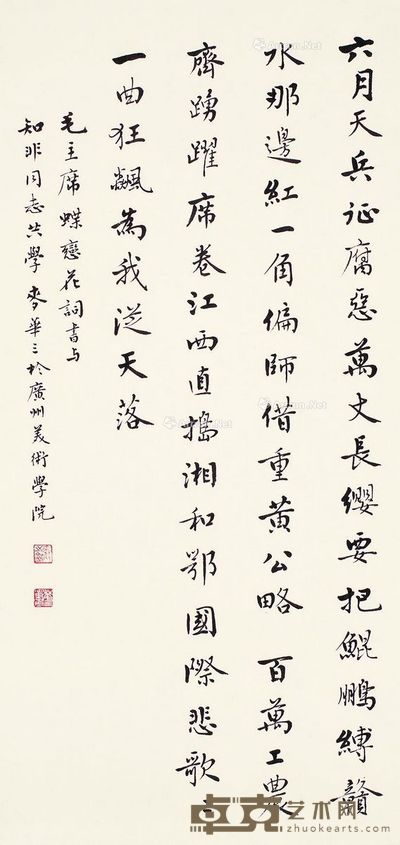 六月天兵征腐惡萬丈長纓要把鯤鵬縛贛
水那邊紅一角偏師借重黃公略 百萬工農
齊踴躍席卷江西直搗湘和鄂國際悲歌〻
一曲狂飆為我從天落
毛主席蝶戀花詞書与
知非同志共學 麥華三於廣州美術學院
卓克艺术网
zhuokearts.com